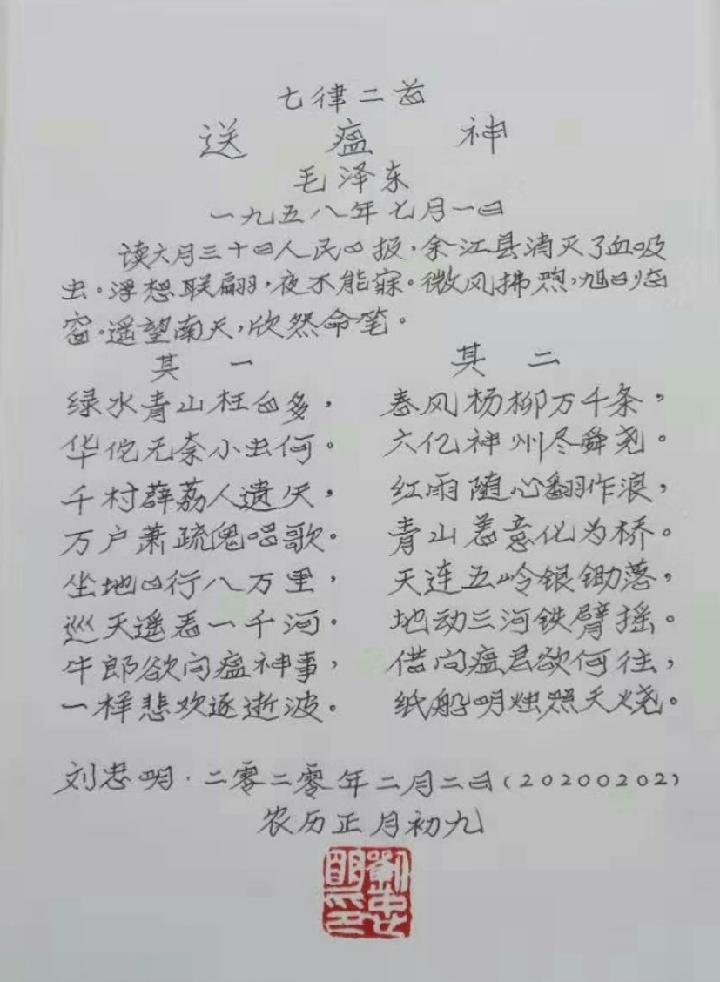 七律二首
送瘟神
毛泽东
一九五八年七月一日
读六月三十日人民日报，余江县消灭了血吸
虫。浮想联翩，夜不能寐。微风拂煦，旭日临
窗。遥望南天，欣然命笔。
其一
绿水青山枉自多，
华佗无奈小虫何。
千村薜荔人遗矢，
万户萧疏鬼唱歌。
坐地日行八万里，
巡天遥看一千河。
牛郎欲问瘟神事，
一样悲欢逐逝波。
其二
春风杨柳万千条，
六亿神州尽舜尧。
红雨随心翻作浪，
青山着意化为桥。
天连五岭银锄落，
地动三河铁臂摇。
借问瘟君欲何往，
纸船明烛照天烧。
刘忠明·二零二零年二月二日（20200202）
农历正月初九
刘忠明印